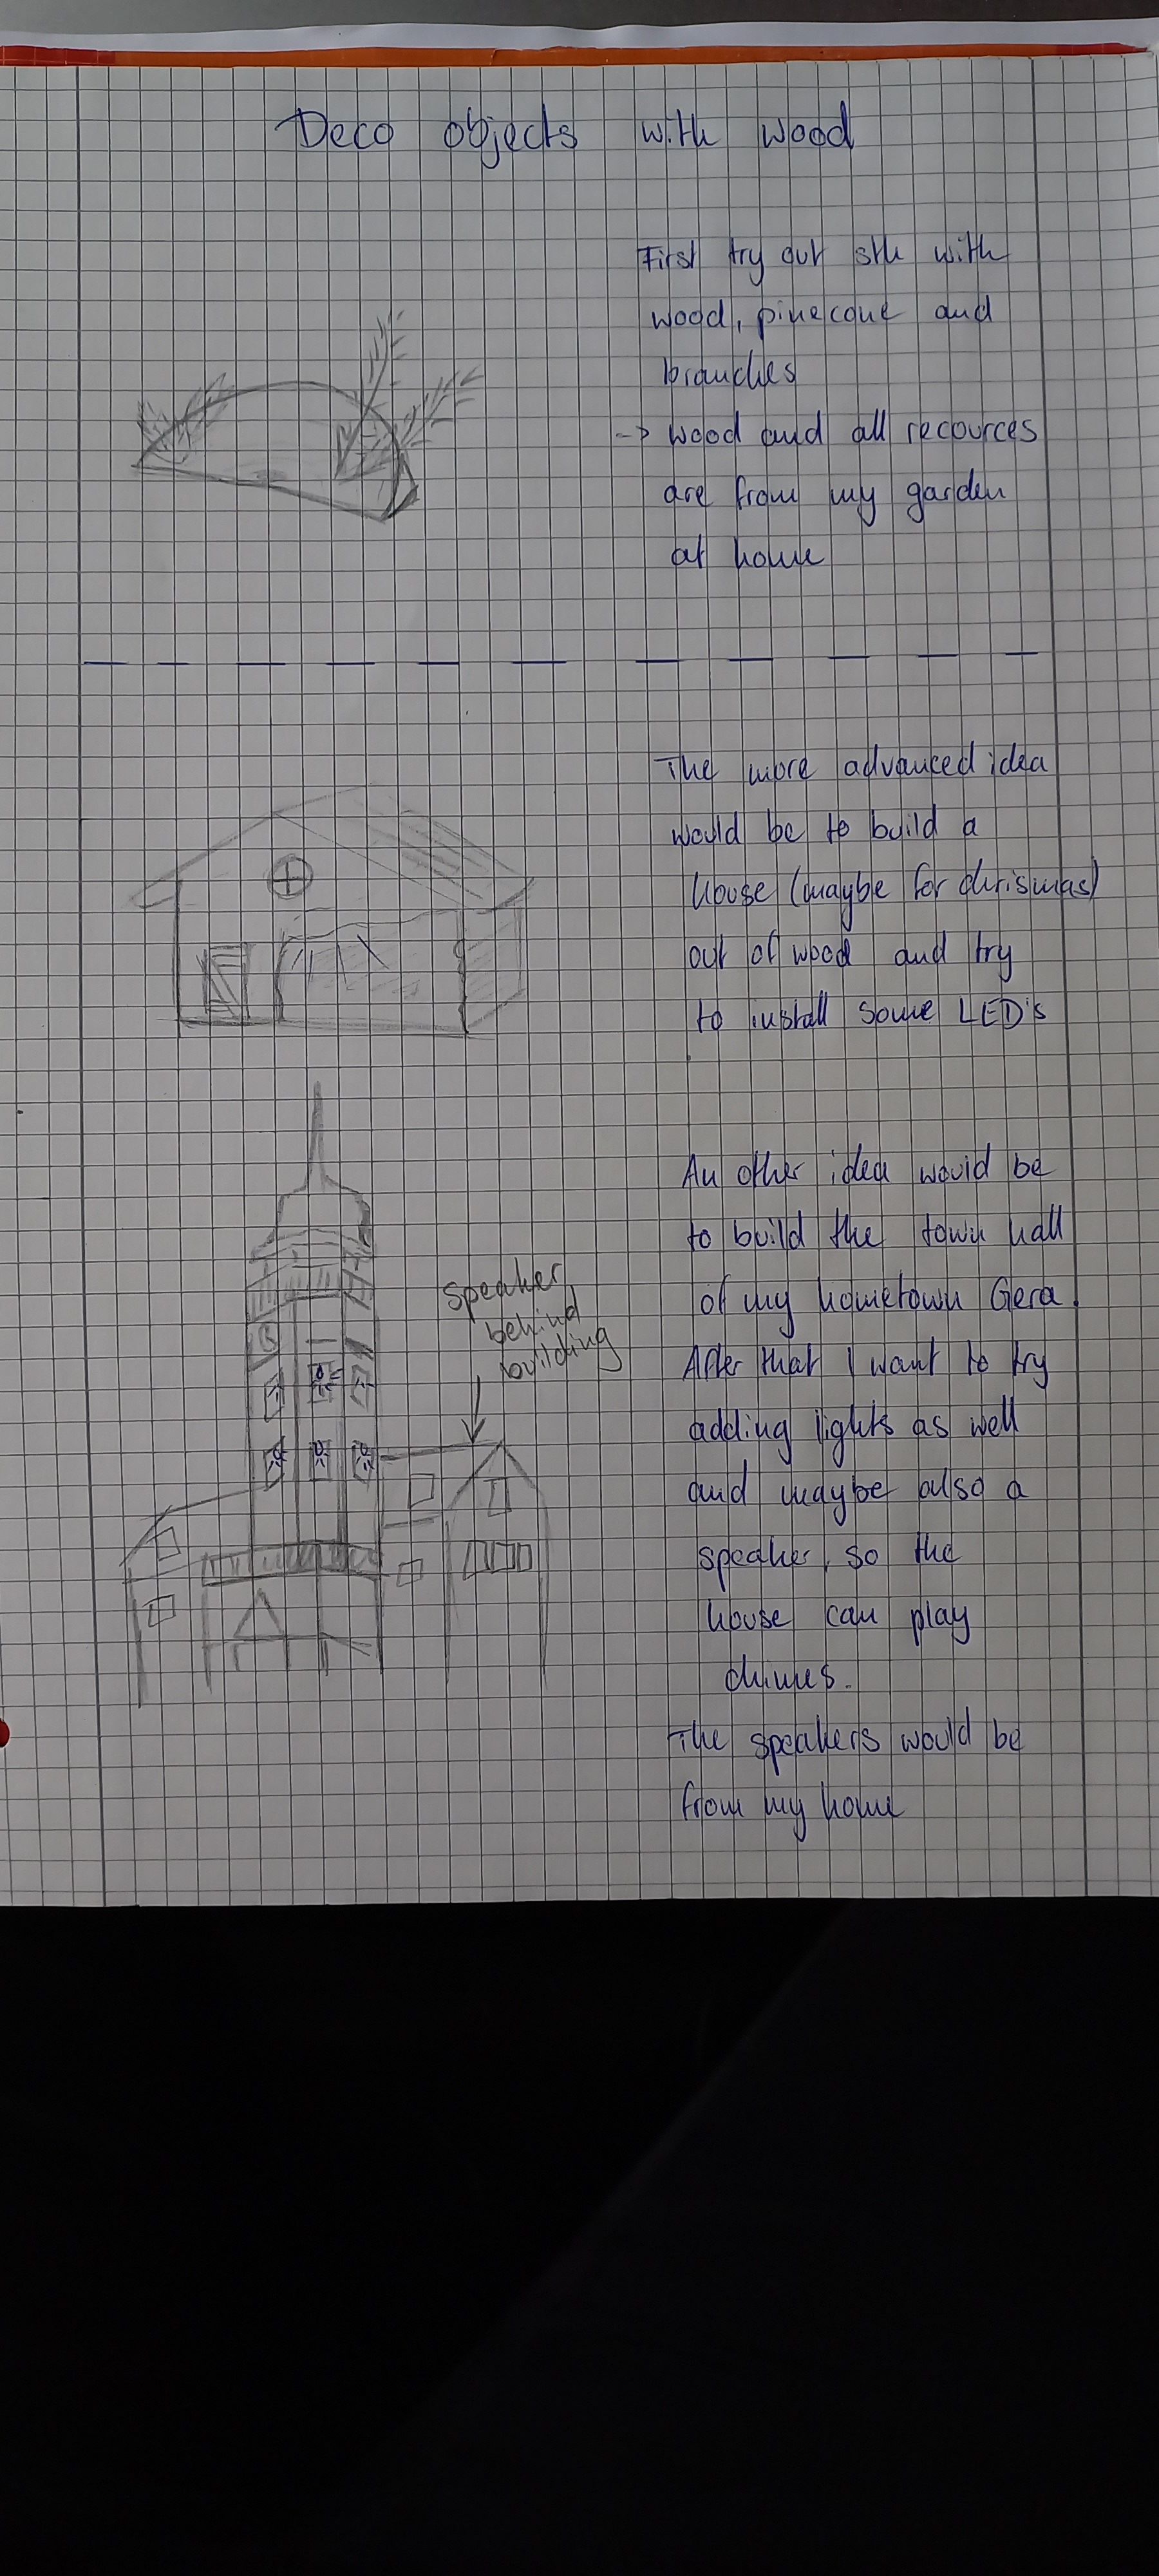 Deco objects with wood
First try out sth with
wood, pinecone and
branches
-> wood and all recources
are from my garden
at home
The more advanced idea
would be to build a
house (maybe for christmas)
out of wood and try
to install some LED's
An other idea would be
to build the town hall
of my hometown Gera.
After that I want to try
adding lights as well
and maybe also a
speaker, so the
house can play
chimes.
The speakers would be
from my home
Speaker
behind
building